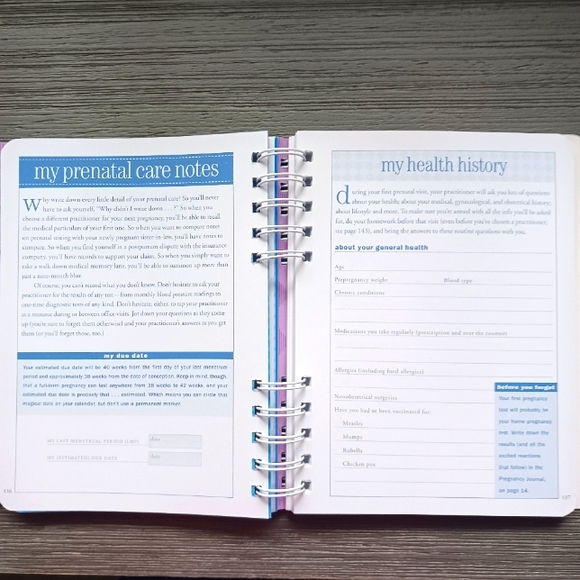 my prenatal care notes
Why write down every little detail of your prenatal care? So you'll never
have to ask yourself, "Why didn't I write down . . . ?" So when you
choose a different practitioner for your next pregnancy, you'll be able to recall
the medical particulars of your first one. So when you want to compare notes
on prenatal testing with your newly pregnant sister-in-law, you'll have notes to
compare. So when you find yourself in a postpartum dispute with the insurance
company, you'll have records to support your claim. So when you simply want to
take a walk down medical memory lane, you'll be able to summon up more than
just a nine-month blur.
Of course, you can't record what you don't know. Don't hesitate to ask
your practitioner for the results of any test—from monthly blood pressure readings to
one-time diagnostic tests of any kind. Don't hesitate, either, to tap your practitioner
as a resource during or between office visits. Jot down your questions as they come
up (you're sure to forget them otherwise) and your practitioner's answers as you get
them (or you'll forget those, too.)
my due date
Your estimated due date will be 40 weeks from the first day of your last menstrual
period and approximately 38 weeks from the date of conception. Keep in mind, though,
that a full-term pregnancy can last anywhere from 38 weeks to 42 weeks, and your
estimated due date is precisely that . . . estimated. Which means you can circle that
magical date on your calendar, but don't use a permanent marker.
MY LAST MENSTRUAL PERIOD (LMP) date
MY ESTIMATED DUE DATE date
136
my health history
during your first prenatal visit, your practitioner will ask you lots of questions
about your health; about your medical, gynecological, and obstetrical history;
about lifestyle and more. To make sure you're armed with all the info you'll be asked
for, do your homework before that visit (even before you've chosen a practitioner;
see page 143), and bring the answers to these routine questions with you.
about your general health
Age
Prepregnancy weight Blood type
Chronic conditions
Medications you take regularly (prescription and over the counter)
Allergies (including food allergies)
Nonobstetrical surgeries
Have you had or been vaccinated for:
Measles
Mumps
Rubella
Chicken pox
before you forget
Your first pregnancy
test will probably be
your home pregnancy
test. Write down the
results (and all the
excited reactions
that follow) in the
Pregnancy Journal,
on page 14.
137